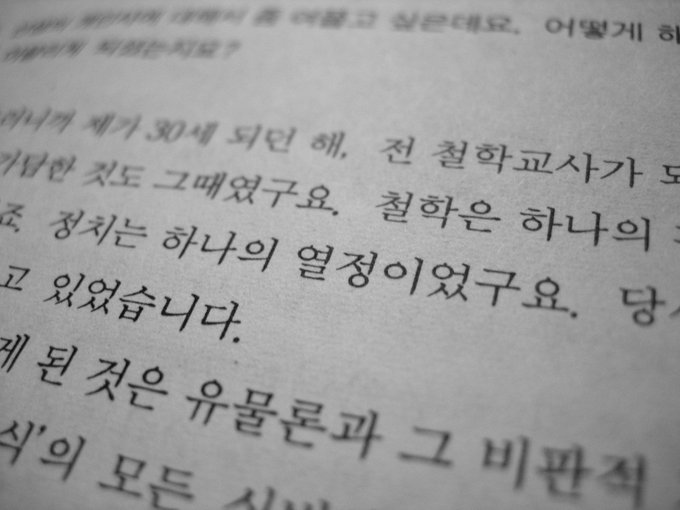 대해서 좀 여쭙고 싶은데요. 어떻게
되셨는지요?
제가 30세 되던 해, 전 철학교사가
가담한 것도 그때였구요. 철학은 하나의
정치는 하나의 열정이었구요. 당
고 있었습니다.
게 된 것은 유물론과 그 비판적
식'의 모든